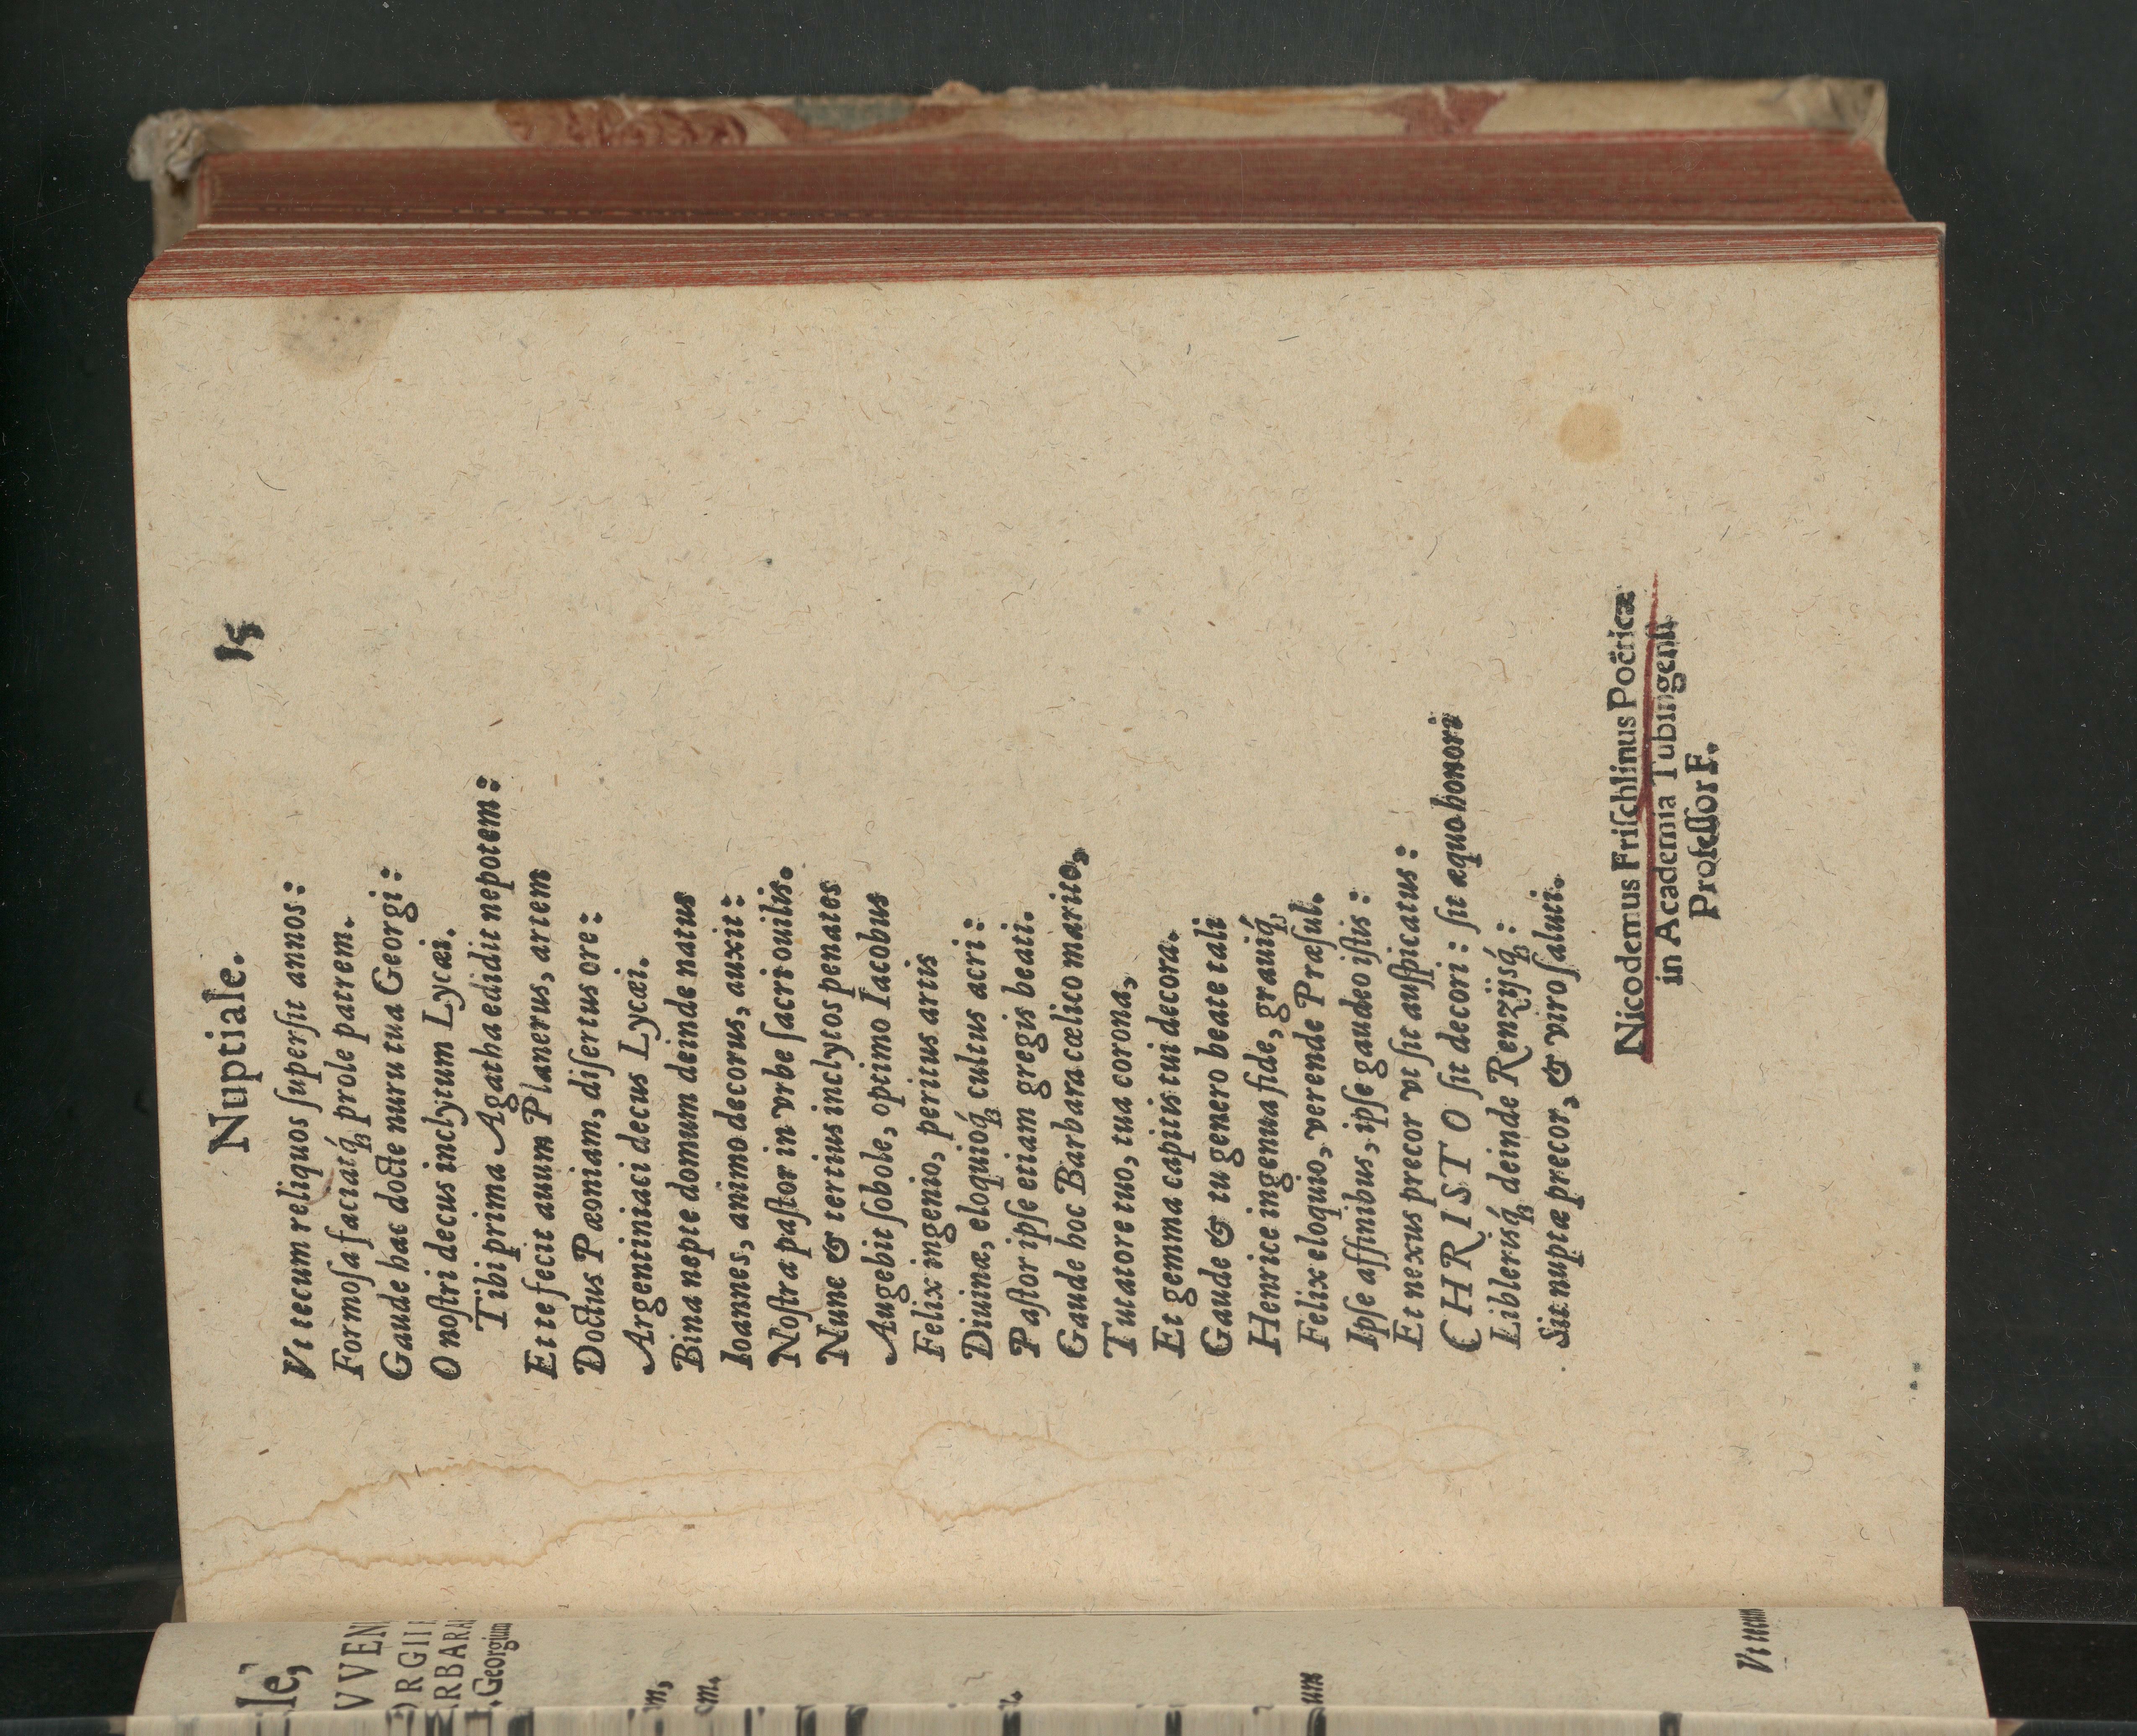 Nuptiale. 15
Vt tecum reliquos ſuperſit annos:
Formoſa faciatq́; prole patrem.
Gaude hac docte nuru tua Georgi:
O noſtri decus inclytum Lycæi.
Tibi prima Agatha edidit nepotem:
Et te fecit auum Planerus, artem
Doctus Pæoniam, diſertus ore:
Argentiniaci decus Lycæi.
Bina nepte domum deinde natus
Ioannes, animo decorus, auxit:
Noſtræ paſtor in vrbe ſacri ouilis.
Nunc & tertius inclytos penates
Augebit ſobole, optimo Iacobus
Felix ingenio, peritus artis
Diuinæ, eloquioq́; cultus acri:
Paſtor ipſe etiam gregis beati.
Gaude hoc Barbara cœlico marito,
Tutatore tuo, tua corona,
Et gemma capitis tui decora.
Gaude & tu genero beate tali
Henrice ingenua fide, grauiq́;
Felix eloquio, verende Præſul.
Ipſe affinibus, ipſe gaudeo iſtis:
Et nexus precor vt ſit auſpicatus:
CHRISTO ſit decori: ſit æquo honori
Liblerisq́; deinde Renzijsq́;:
Sit nuptæ precor, & viro ſaluti.
Nicodemus Friſchlinus Poëticæ
in Academia Tubingenſi
Profeſſor F.
le,
VVEN
ORGII
RBARA
Georgium
m,
cm.
um
Vt tecum